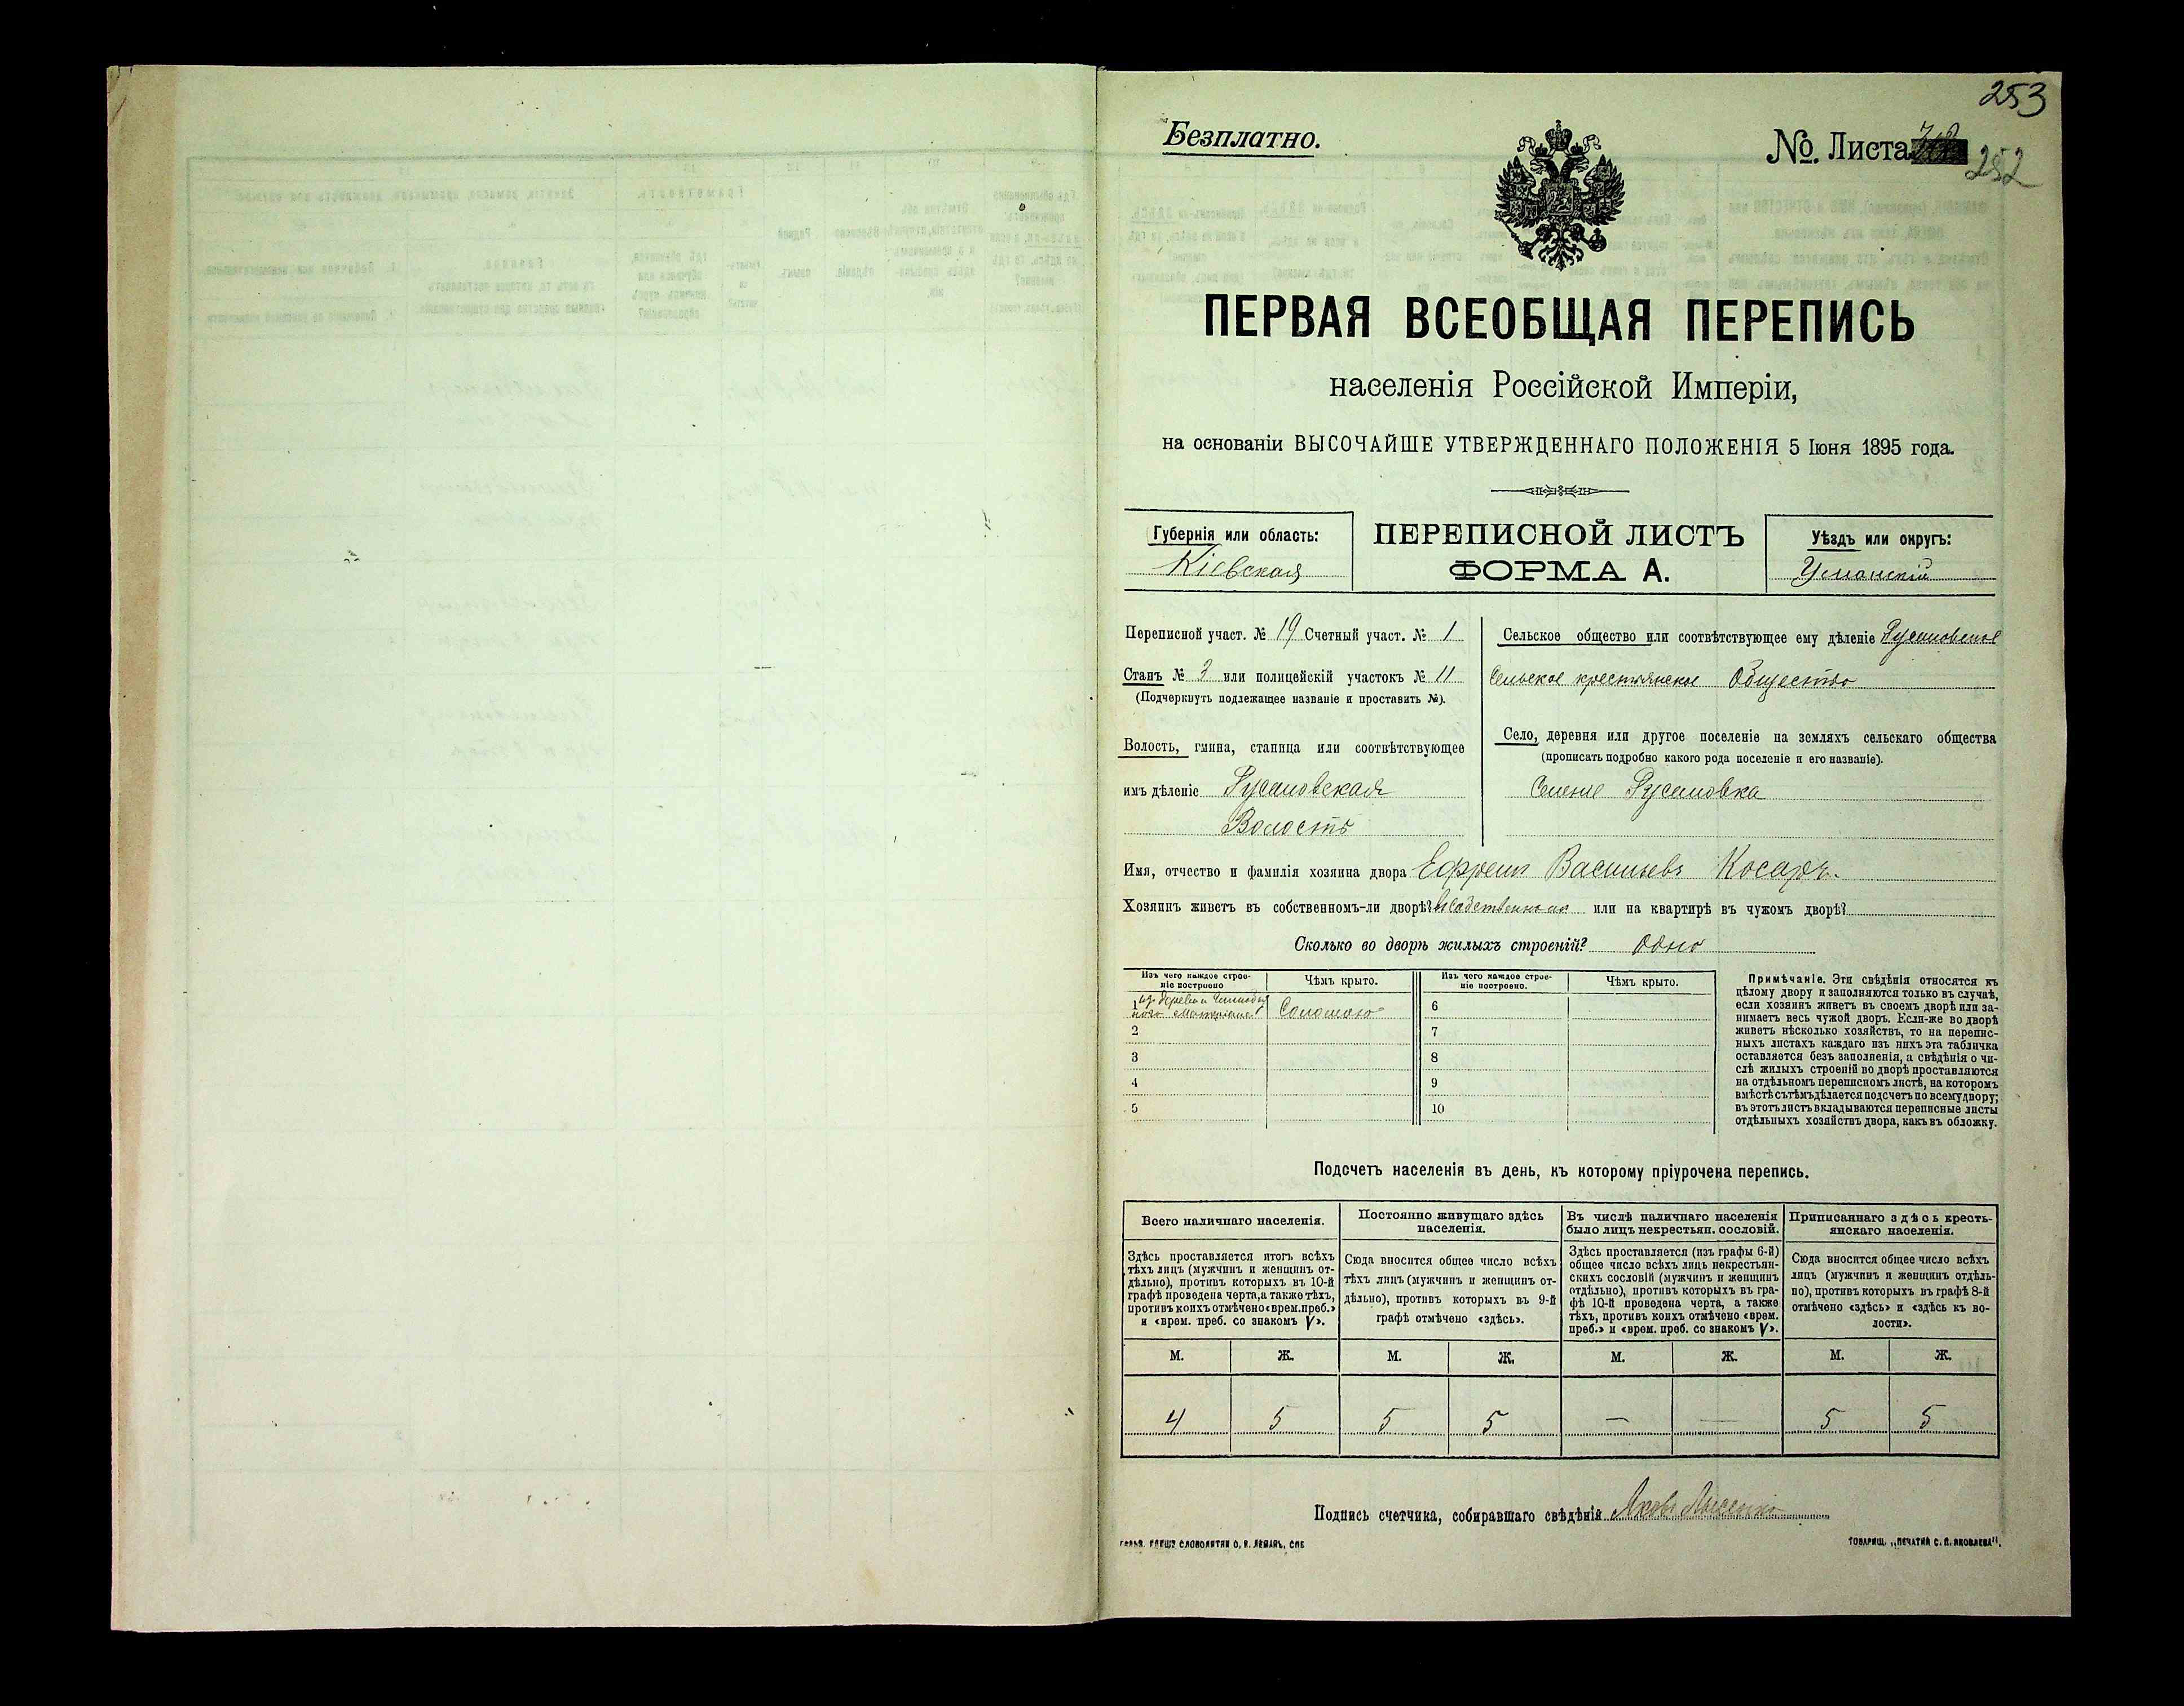 253
Безплатно.
№. Листа
252
ПЕРВАЯ ВСЕОБЩАЯ ПЕРЕПИСЬ
населенія Россійской Имперіи,
на основаніи ВЫСОЧАЙШЕ УТВЕРЖДЕННАГО ПОЛОЖЕНІЯ 5 Іюня 1895 года.
Губернія или область:
Кіевская
ПЕРЕПИСНОЙ ЛИСТЪ
ФОРМА А.
Уѣздъ или округъ:
Уманскій
Переписной участ. № 19 Счетный участ. № 1
Станъ № 3 или полицейскій участокъ № 11
(Подчеркнуть подлежащее названіе и проставить №).
Волость, гмина, станица или соотвѣтствующее
имъ дѣленіе Русаловская
Волость
Сельское общество или соотвѣтствующее ему дѣленіе Русаловское
Сельское крестьянское Общество
Село, деревня или другое поселеніе на земляхъ сельскаго общества
(прописать подробно какого рода поселеніе и его названіе).
Селеніе Русаловка
Имя, отчество и фамилія хозяина двора Ефремъ Васильевъ Косарь.
Хозяинъ живетъ въ собственномъ-ли дворѣ? въ собственномъ или на квартирѣ въ чужомъ дворѣ?
Сколько во дворѣ жилыхъ строеній? одно
Изъ чего каждое строе-
ніе построено
Чѣмъ крыто.
Изъ чего каждое строе-
ніе построено.
Чѣмъ крыто.
1 изъ дерева
матеріала Соломою
2
3
4
5
6
7
8
9
10
Примѣчаніе. Эти свѣдѣнія относятся къ
цѣлому двору и заполняются только въ случаѣ,
если хозяинъ живетъ въ своемъ дворѣ или за-
нимаетъ весь чужой дворъ. Если-же во дворѣ
живетъ нѣсколько хозяйствъ, то на перепис-
ныхъ листахъ каждаго изъ нихъ эта табличка
оставляется безъ заполненія, а свѣдѣнія о чи-
слѣ жилыхъ строеній во дворѣ проставляются
на отдѣльномъ переписномъ листѣ, на которомъ
вмѣстѣ съ тѣмъ дѣлается подсчетъ по всему двору;
въ этотъ листъ вкладываются переписные листы
отдѣльныхъ хозяйствъ двора, какъ въ обложку.
Подсчетъ населенія въ день, къ которому пріурочена перепись.
Всего наличнаго населенія.
Здѣсь проставляется итогъ всѣхъ
тѣхъ лицъ (мужчинъ и женщинъ от-
дѣльно), противъ которыхъ въ 10-й
графѣ проведена черта, а также тѣхъ,
противъ коихъ отмѣчено «врем. преб.»
и «врем. преб. со знакомъ V».
Постоянно живущаго здѣсь
населенія.
Сюда вносится общее число всѣхъ
тѣхъ лицъ (мужчинъ и женщинъ от-
дѣльно), противъ которыхъ въ 9-й
графѣ отмѣчено «здѣсь».
Въ числѣ наличнаго населенія
было лицъ некрестьян. сословій.
Здѣсь проставляется (изъ графы 6-й)
общее число всѣхъ лицъ некрестьян-
скихъ сословій (мужчинъ и женщинъ
отдѣльно), противъ которыхъ въ гра-
фѣ 10-й проведена черта, а также
тѣхъ, противъ коихъ отмѣчено «врем.
преб.» и «врем. преб. со знакомъ V».
Приписаннаго здѣсь кресть-
янскаго населенія.
Сюда вносится общее число всѣхъ
лицъ (мужчинъ и женщинъ отдѣль-
но), противъ которыхъ въ графѣ 8-й
отмѣчено «здѣсь» и «здѣсь къ во-
лости».
М. Ж. М. Ж. М. Ж. М. Ж.
4 5 5 5 — — 5 5
Подпись счетчика, собиравшаго свѣдѣнія Яковъ Лысенко
СЛОВОЛИТНИ О. И. ЛЕМАНЪ, СПБ
ТОВАРИЩ. „ПЕЧАТНЯ С. П. ЯКОВЛЕВА".